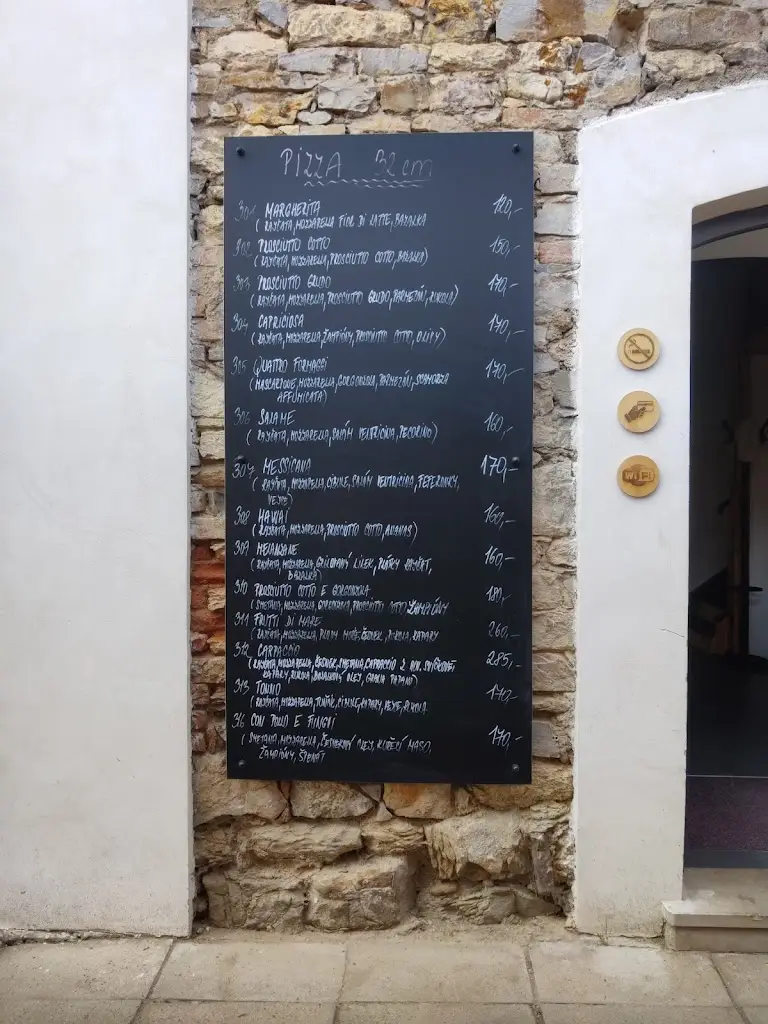 PIZZA 32 cm
301 MARGHERITA 120,-
(RAJČATA, MOZZARELLA FIOR DI LATTE, BAZALKA
302 PROSCIUTTO COTTO 150,-
(RAJČATA, MOZZARELLA, PROSCIUTTO COTTO, BAZALKA)
303 PROSCIUTTO CRUDO 170,-
(RAJČATA, MOZZARELLA, PROSCIUTTO CRUDO, PARMEZÁN, RUKOLA)
304 CAPRICIOSA 170,-
(RAJČATA, MOZZARELLA, ŽAMPIÓNY, PROSCIUTTO COTTO, OLIVY)
305 QUATTRO FORMAGGI 170,-
(MASCARPONE, MOZZARELLA, GORGONZOLA, PARMEZÁN, SCAMORZA
AFFUMICATA)
306 SALAME 160,-
(RAJČATA, MOZZARELLA, SALÁM VENTRICINA, PECORINO)
307 MESSICANA 170,-
(RAJČATA, MOZZARELLA, CIBULE, SALÁM VENTRICINA, FEFERONKY,
VEJCE)
308 HAWAI 160,-
(RAJČATA, MOZZARELLA, PROSCIUTTO COTTO, ANANAS)
309 MELANZANE 160,-
(RAJČATA, MOZZARELLA, GRILOVANÝ LILEK, PLÁTKY RAJČAT,
BAZALKA)
310 PROSCIUTTO COTTO E GORGONZOLA 180,-
(SMETANA, MOZZARELLA, GORGONZOLA, PROSCIUTTO COTTO, ŽAMPIÓNY
311 FRUTTI DI MARE 260,-
(RAJČATA, MOZZARELLA, PLODY MOŘE, ČESNEK, RUKOLA, KAPARY
312 CARPACCIO 285,-
(RAJČATA, MOZZARELLA, ČESNEK, SMETANA, CARPACCIO Z
KAPARY, RUKOLA, OLEJ, GRANA PADANO)
313 TONNO 170,-
(RAJČATA, MOZZARELLA, TUŇÁK, CIBULE, KAPARY, VEJCE, RUKOLA
314 CON POLLO E FUNGHI 170,-
(SMETANA, MOZZARELLA, ČESNEKOVÝ OLEJ, KUŘECÍ MASO,
ŽAMPIÓNY, ŠPENÁT
WiFi